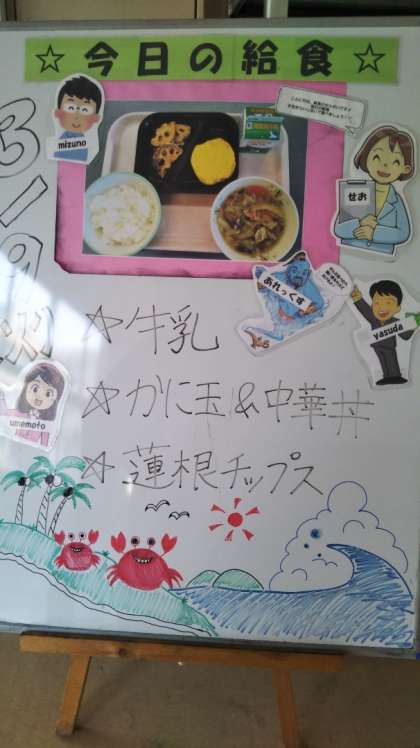 ☆今日の給食☆
mizuno
せお
あれっくす
yasuda
umemoto
3/9
☆牛乳
☆かに玉&中華丼
☆蓮根チップス